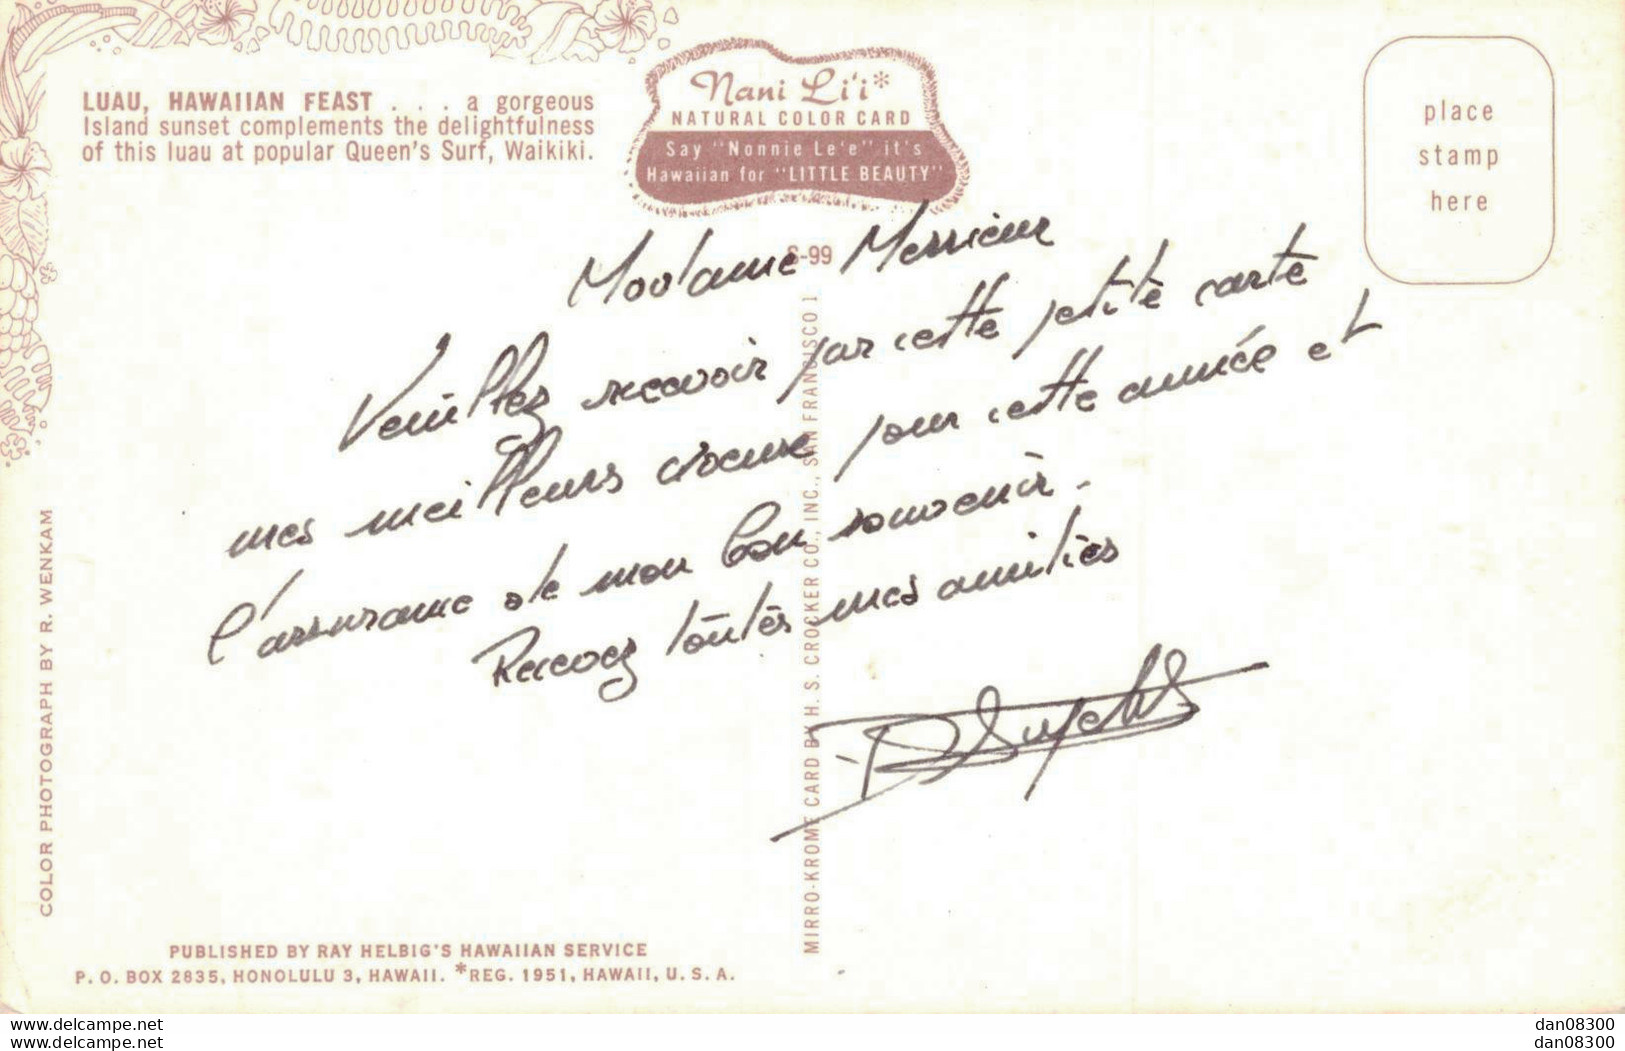 LUAU, HAWAIIAN FEAST . . . a gorgeous
Island sunset complements the delightfulness
of this luau at popular Queen's Surf, Waikiki.
Nani Li'i*
NATURAL COLOR CARD
Say "Nonnie Le'e" it's
Hawaiian for "LITTLE BEAUTY"
place
stamp
here
S-99
Madame Messieur
Veuillez recevoir par cette petite carte
mes meilleurs voeux pour cette année et
l'assurance de mon bon souvenir.
Recevez toutes mes amitiés
COLOR PHOTOGRAPH BY R. WENKAM
MIRRO-KROME CARD BY H. S. CROCKER CO., INC., SAN FRANCISCO 1
PUBLISHED BY RAY HELBIG'S HAWAIIAN SERVICE
P. O. BOX 2835, HONOLULU 3, HAWAII. *REG. 1951, HAWAII, U. S. A.
www.delcampe.net
www.delcampe.net
dan08300
dan08300